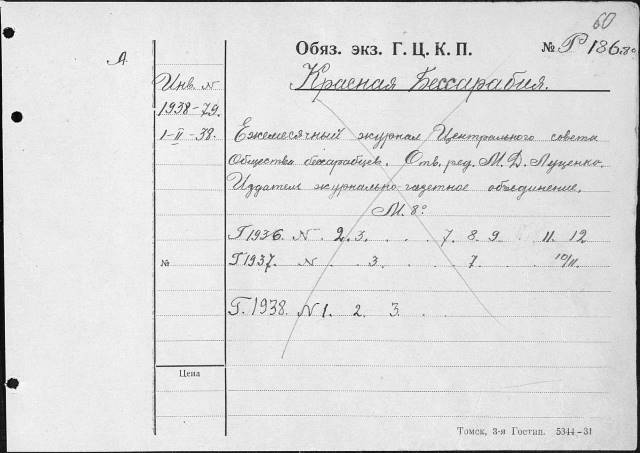 60
Обяз. экз. Г. Ц. К. П. № Р 186.8°
А
Красная Бессарабия.
Инв. N
1938-79.
1-II-38.
Ежемесячный журнал Центрального совета
Общества бессарабцев. Отв. ред. М. Д. Луценко.
Издатель журнально-газетное объединение.
М. 8°
Г1936. N. 2. 3. . . 7. 8. 9 . 11. 12
№ Г1937. N. . 3. . . . 7. . . 10/11.
Г. 1938. N 1. 2. 3. .
Цена
Томск, 3-я Гостип. 5344-31